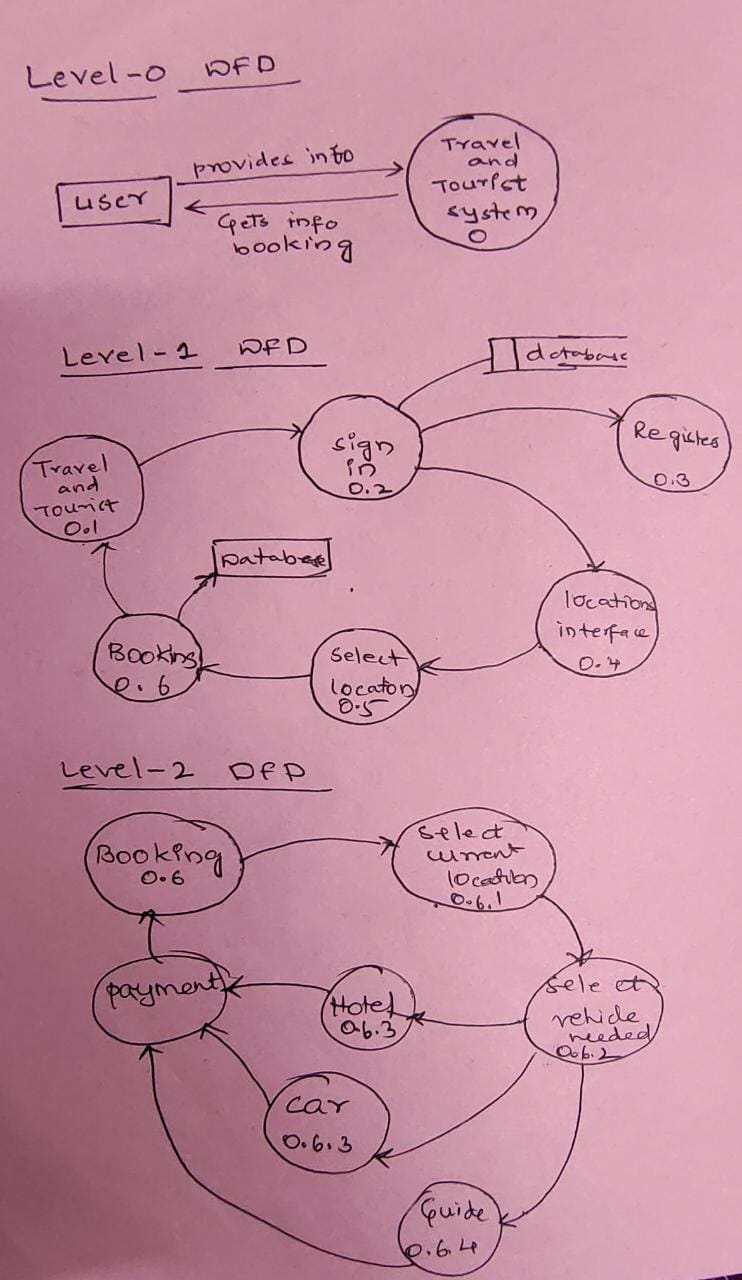 Level-0 DFD
provides info
user
Gets info
booking
Travel
and
Tourist
system
0
Level-1 DFD
database
Sign
in
0.2
Register
0.3
Travel
and
Tourist
0.1
Database
locations
interface
0.4
Booking
0.6
Select
locaton
0.5
Level-2 DFD
Booking
0.6
Select
current
location
0.6.1
payment
Hotel
0.6.3
Select
vehicle
needed
0.6.2
Car
0.6.3
Guide
0.6.4